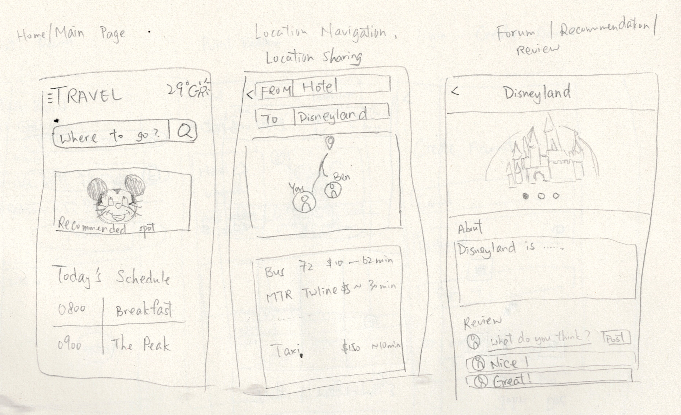 Home/Main Page
TRAVEL
29°C
Where to go?
Recommended spot
Today's Schedule
0800 Breakfast
0900 The Peak
Location Navigation,
Location Sharing
< FROM Hotel
TO Disneyland
You
Ben
Bus 72 $10 ~ 62min
MTR TWline $5 ~ 30min
Taxi $150 ~10min
Forum / Recommendation /
Review
< Disneyland
About
Disneyland is .....
Review
What do you think? Post
Nice!
Great!